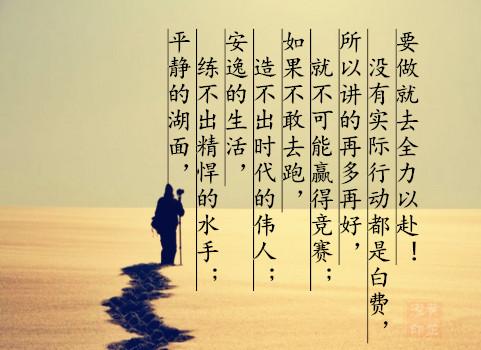 平静的湖面，
练不出精悍的水手；
安逸的生活，
造不出时代的伟人；
如果不敢去跑，
就不可能赢得竞赛；
所以讲的再多再好，
没有实际行动都是白费，
要做就去全力以赴！